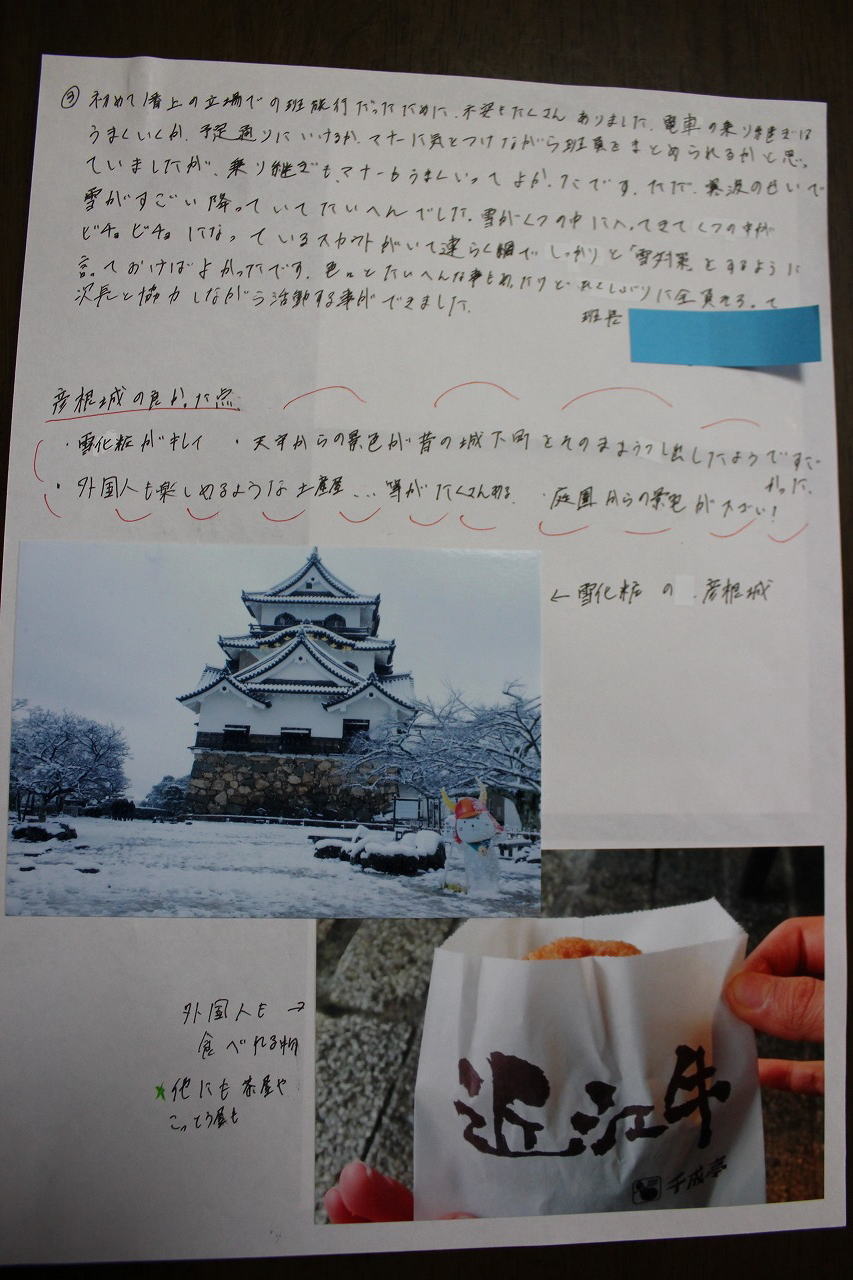 ③ 初めて1番上の立場での班旅行だったために、不安もたくさんありました。電車の乗り継ぎは
うまくいくか、予定通りにいけるか、マナーに気をつけながら班員をまとめられるかと思っ
ていましたが、乗り継ぎも、マナーもうまくいってよかったです。ただ、寒波のせいで
雪がすごい降っていてたいへんでした。雪がくつの中に入ってきてくつの中が
ビチョビチョになっているスカウトがいて連らく網でしっかりと「雪対策」をするように
言っておけばよかったです。色々とたいへんな事もあったけど、久しぶりに全員そろって
次長と協力しながら活動する事ができました。
班長
彦根城の良かった点
・雪化粧がキレイ ・天守からの景色が昔の城下町をそのままうつし出したようですご
かった。
・外国人も楽しめるような土産屋…等がたくさんある。 ・庭園からの景色が すごい!
← 雪化粧の 彦根城
外国人も →
食べれる物
★他にも茶屋や
こっとう屋も
近江牛
千成亭